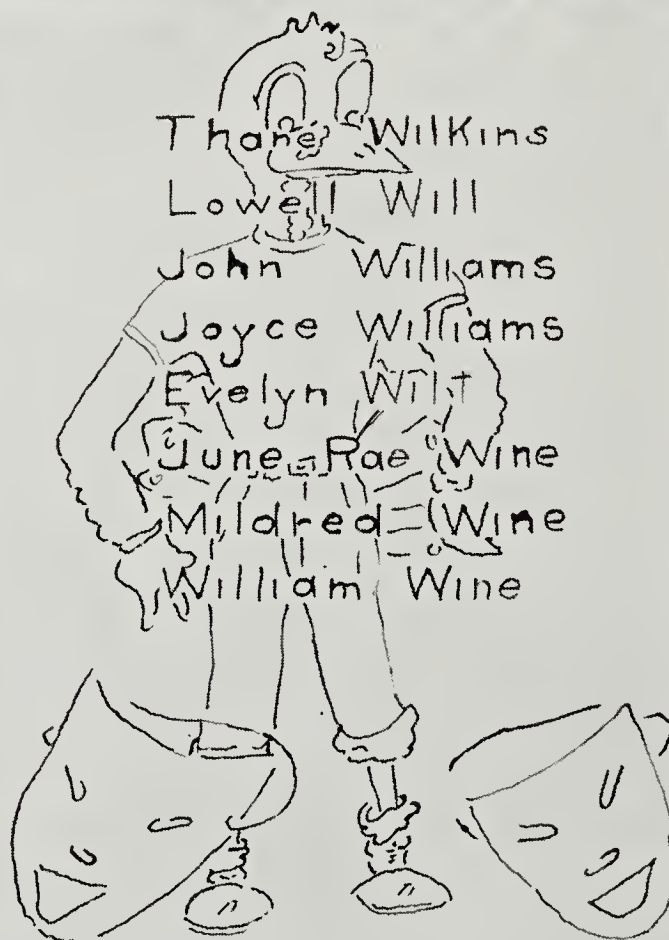 Thane Wilkins
Lowell Will
John Williams
Joyce Williams
Evelyn Wilt
June Rae Wine
Mildred Wine
William Wine